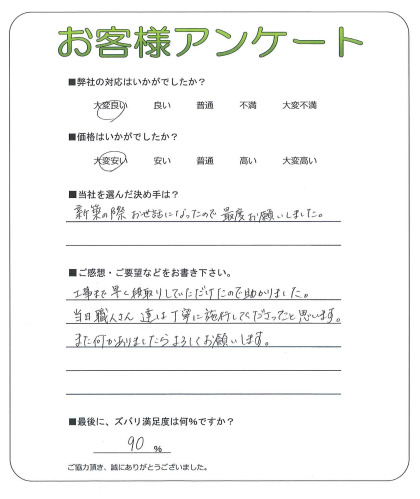 お客様アンケート
■弊社の対応はいかがでしたか？
大変良い 良い 普通 不満 大変不満
■価格はいかがでしたか？
大変安い 安い 普通 高い 大変高い
■当社を選んだ決め手は？
新築の際 お世話になったので 最度お願いしました。
■ご感想・ご要望などをお書き下さい。
工事まで 早く段取りしていただけたので助かりました。
当日職人さん 達は丁寧に施行してくださったと思います。
また何かありましたらよろしくお願いします。
■最後に、ズバリ満足度は何％ですか？
90 ％
ご協力頂き、誠にありがとうございました。